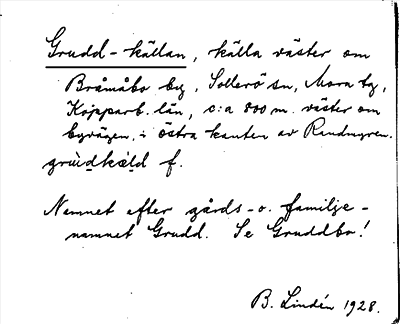 Grudd-källan, källa väster om
Bråmåbo by, Sollerö sn, Mora tg,
Kopparb. län, c:a 800 m. väster om
byvägen, i östra kanten av Rudmyren.
grùdkæ̀ld f.
Namnet efter gårds- o. familje-
namnet Grudd. Se Gruddbo!
B. Lindén 1928.